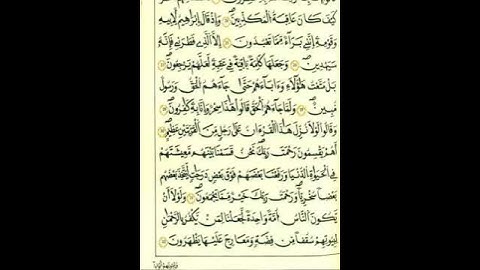 كَيْفَ كَانَ عَٰقِبَةُ الْمُكَذِّبِينَ ۝ وَإِذْ قَالَ إِبْرَٰهِيمُ لِأَبِيهِ
وَقَوْمِهِ إِنَّنِي بَرَآءٌ مِّمَّا تَعْبُدُونَ ۝ إِلَّا الَّذِي فَطَرَنِي فَإِنَّهُ
سَيَهْدِينِ ۝ وَجَعَلَهَا كَلِمَةً بَاقِيَةً فِي عَقِبِهِ لَعَلَّهُمْ يَرْجِعُونَ ۝
بَلْ مَتَّعْتُ هَٰٓؤُلَآءِ وَءَابَآءَهُمْ حَتَّىٰ جَآءَهُمُ الْحَقُّ وَرَسُولٌ
مُّبِينٌ ۝ وَلَمَّا جَآءَهُمُ الْحَقُّ قَالُوا هَٰذَا سِحْرٌ وَإِنَّا بِهِ كَٰفِرُونَ ۝
وَقَالُوا لَوْلَا نُزِّلَ هَٰذَا الْقُرْءَانُ عَلَىٰ رَجُلٍ مِّنَ الْقَرْيَتَيْنِ عَظِيمٍ ۝
أَهُمْ يَقْسِمُونَ رَحْمَتَ رَبِّكَ نَحْنُ قَسَمْنَا بَيْنَهُم مَّعِيشَتَهُمْ
فِي الْحَيَوٰةِ الدُّنْيَا وَرَفَعْنَا بَعْضَهُمْ فَوْقَ بَعْضٍ دَرَجَٰتٍ لِّيَتَّخِذَ بَعْضُهُم
بَعْضًا سُخْرِيًّا وَرَحْمَتُ رَبِّكَ خَيْرٌ مِّمَّا يَجْمَعُونَ ۝ وَلَوْلَآ أَن
يَكُونَ النَّاسُ أُمَّةً وَٰحِدَةً لَّجَعَلْنَا لِمَن يَكْفُرُ بِالرَّحْمَٰنِ
لِبُيُوتِهِمْ سُقُفًا مِّن فِضَّةٍ وَمَعَارِجَ عَلَيْهَا يَظْهَرُونَ ۝